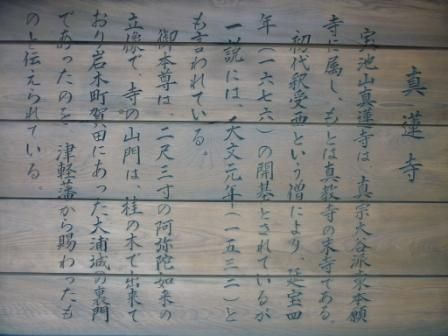 真蓮寺
宝池山真蓮寺は、真宗大谷派東本願
寺に属し、もとは真教寺の末寺である。
初代釈受西という僧により、延宝四
年(一六七六)の開基とされているが
一説には、天文元年(一五三二)と
も言われている。
御本尊は、二尺三寸の阿弥陀如来の
立像で、寺の山門は、桂の木で出来て
おり岩木町賀田にあった大浦城の裏門
であったのを、津軽藩から賜わったも
のと伝えられている。